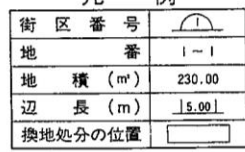 凡例
街区番号 1
地番 1~1
地積(㎡) 230.00
辺長(m) 5.00
換地処分の位置